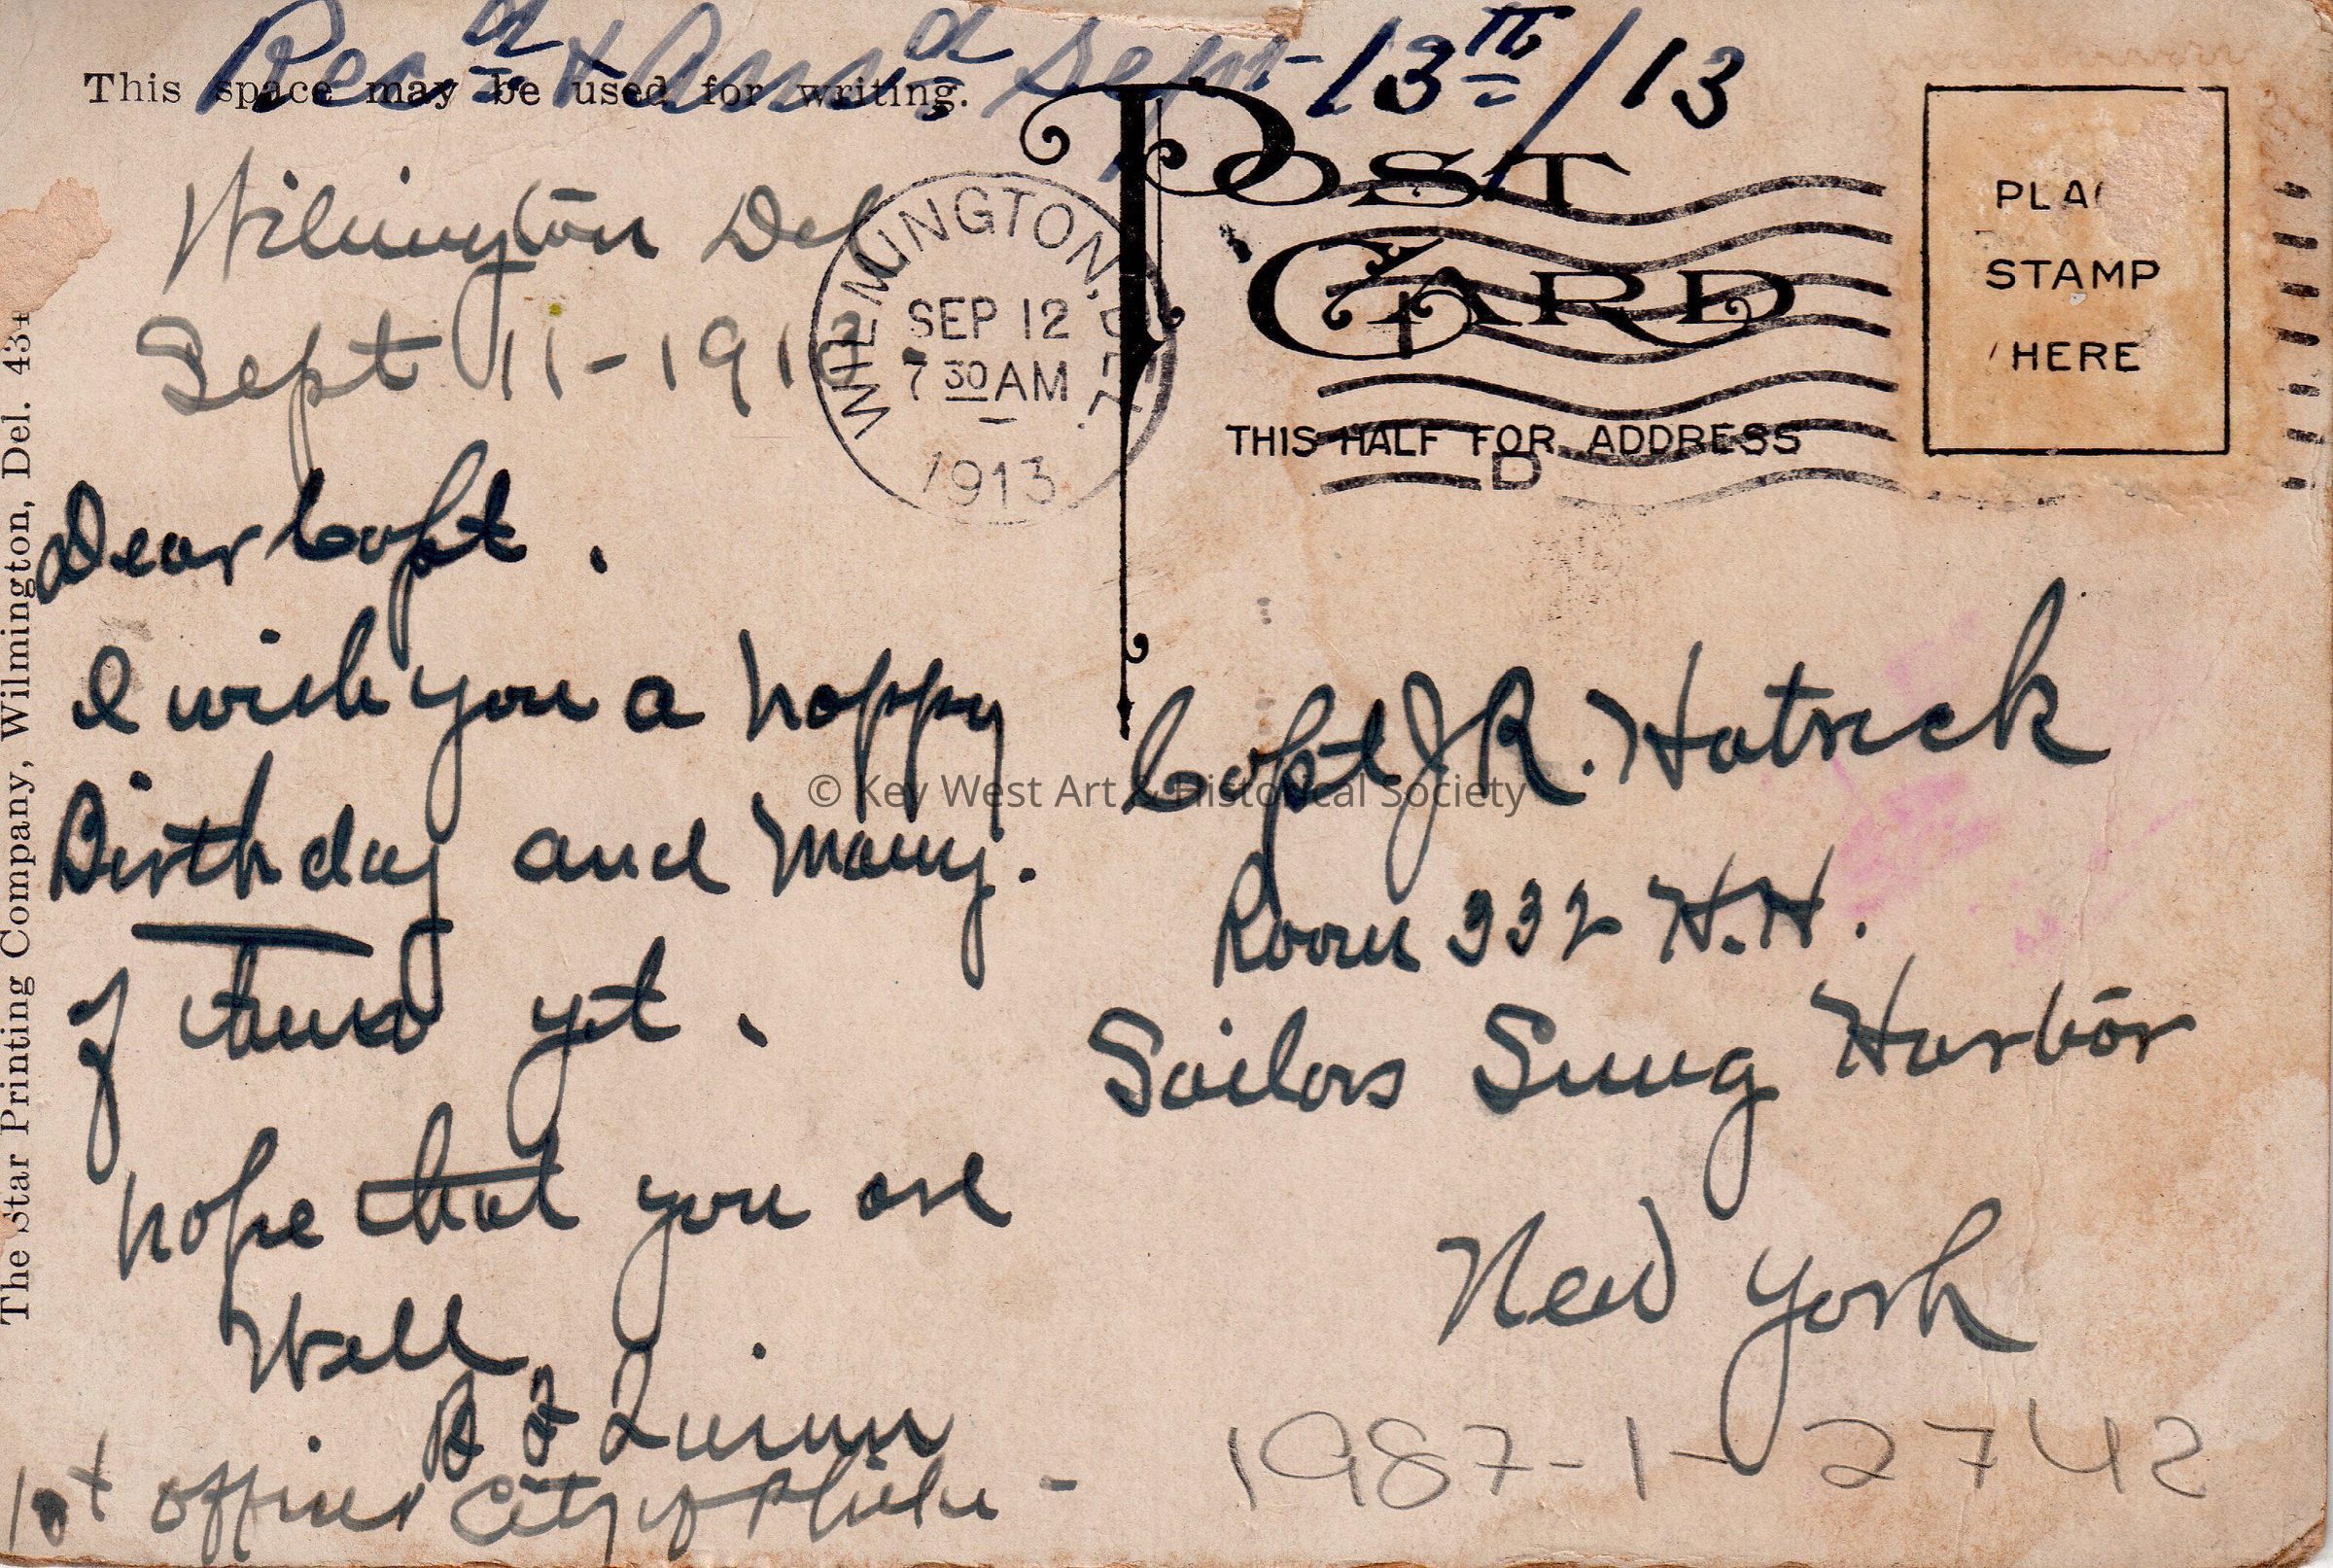 Recd & Ansd Sept 13th/13
This space may be used for writing.
Wilmington Del
Sept 11-1913
Dear Capt.
I wish you a happy
Birthday and many.
of them yet.
hope that you are
Well
B F Quinn
1st officer City of Phila -
The Star Printing Company, Wilmington, Del. 431
WILMINGTON, DEL.
SEP 12
7 30 AM
1913
POST CARD
THIS HALF FOR ADDRESS
D
PLAC
STAMP
HERE
Capt J.R. Hatrick
Room 332 H.H.
Sailors Snug Harbor
New York
1987-1-2742
© Key West Art & Historical Society